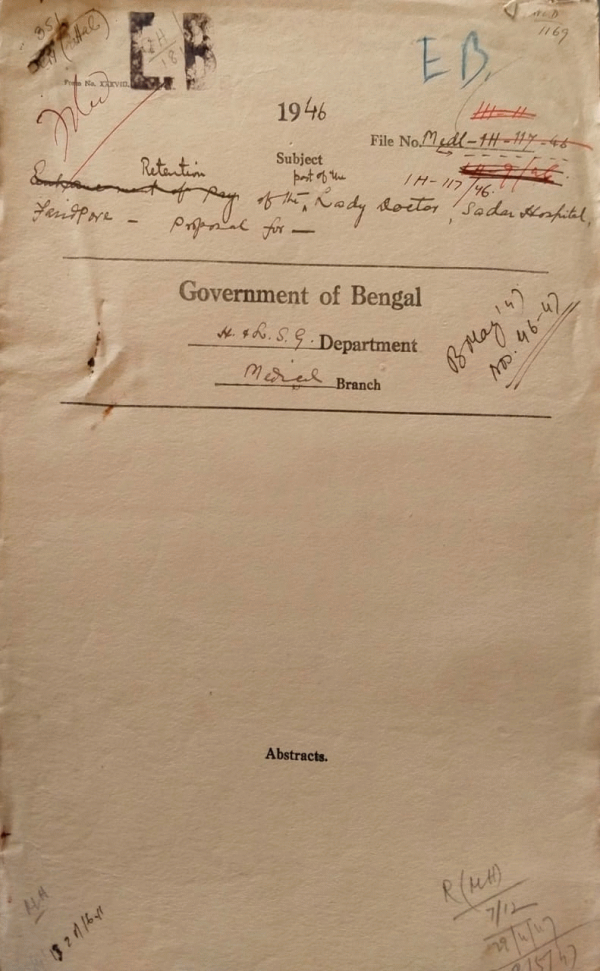 351
EB
Form No. XXXVIII
Filed
EB.
1169
1946
III-11
File No. Medl-1H-117-46
1H-117/46.
Subject
Retention post of the
Enhancement of pay of the Lady Doctor, Sadar Hospital,
Faridpore - Proposal for -
Government of Bengal
H. & L. S. G. Department
Medical Branch
B May '47
Nos. 46-47
Abstracts.
MH
R (MH)
7/12
29/4/47